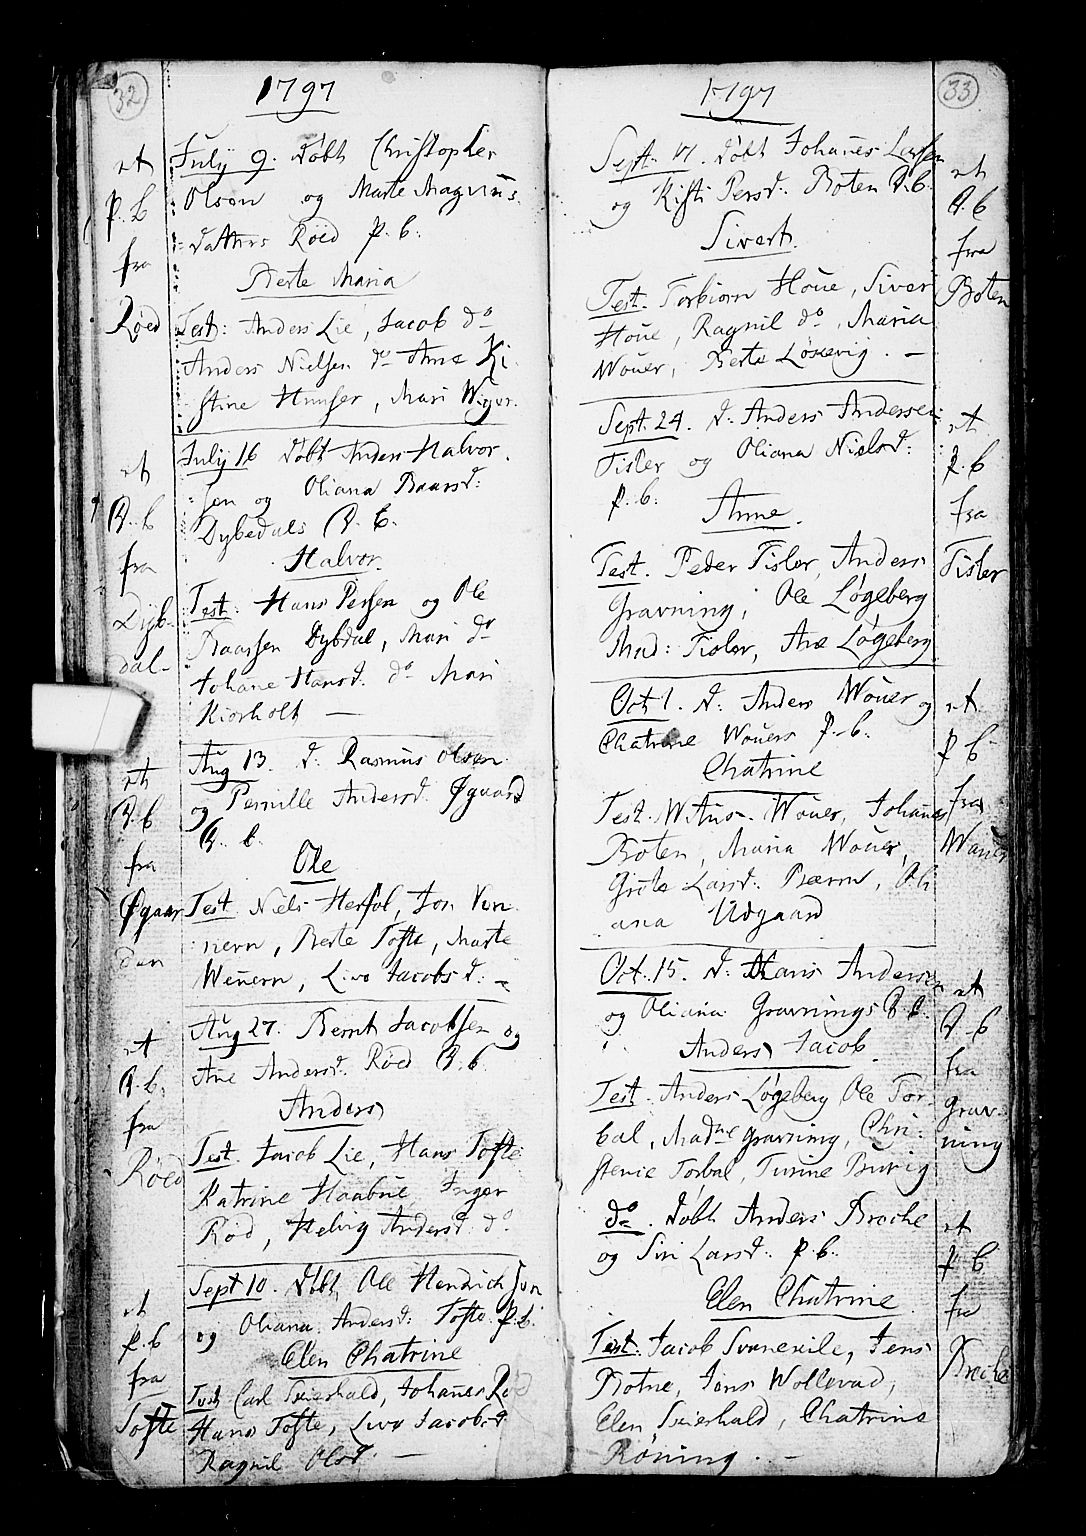 32
1797
July 9. Døbt Christopher
Olsen og Marte Magnus
Datters Røed P. b.
Berte Maria
Test: Anders Lie, Jacob do
Anders Nielsen do Ane Ki
stine Hunser, Mari
ret
P. b
fra
Røed
July 16 Døbt Anders Halvor
sen og Oliana Baarsd:
Dybedals B. b.
Halvor.
Test. Hans Persen og Ole
Baarsen Dybdal, Mari do
Johane Hansd. do Mari
Kiorholt —
et
B. b
fra
Dyb-
dal-
Aug 13. d. Rasmus Olsen
og Pernille Andersd. Øgaard
B. b.
Ole
Test. Niels Herføl, Jon Ven
nern, Berte Tofte, Marte
Wenern, Live Jacobsd. -
et
B. b
fra
Øgaar
den
Aug 27. Bernt Jacobsen og
Ane Andersd. Røed B. b
Anders
Test. Jacob Lie, Hans Tofte
Katrine Haabue Inger
Rød, Helvig Andersd. do
et
B. b.
fra
Røed
Sept 10. Døbt Ole Hendrichsen
og Oliana Andersd: Tofte P. b.
Elen Chatrine
Test Carl Seierhald, Johanes Rød
Hans Tofte, Live Jacobsd
Ragnil Olsd. —
et
P. b
fra
Tofte
33
1797
Sept. 17. Døbt Johanes Larsen
og Kisti Persd. Boten B. b.
Sivert.
Test. Torbiorn Houe, Siver
Houe, Ragnil do, Maria
Wouer, Berte Løsevig. —
et
B. b
fra
Boten
Sept. 24. d. Anders Andersen
Tisler og Oliana Nielsd.
P. b.
Anne.
Test. Peder Tisler, Anders
Gravning, Ole Løgeberg
Mad: Tisler, Ane Løgeberg
et
P. b
fra
Tisler
Oct 1. d. Anders Wouer og
Chatrine Wouers P. b.
Chatrine
Test. Witus Wouer, Johanes
Boten, Maria Wouer,
Grete Larsd. Bærm, Oli
ana Udgaard
et
P b
fra
Wouer
Oct. 15. d. Hans Andersen
og Oliana Gravnings B. b.
Anders Jacob.
Test. Anders Løgeberg Ole Tor-
bal, Madme Gravning, Chri-
stence Torbal, Turine Burvig
et
B. b
fra
Grav-
ning
do. Døbt Anders Broche
og Siri Larsd. P. b.
Elen Chatrine
Test. Jacob Svanekile, Jens
Botne, Jens Wollevad,
Elen Seierhald, Chatrine
Røning. —
et
P b
fra
Broche